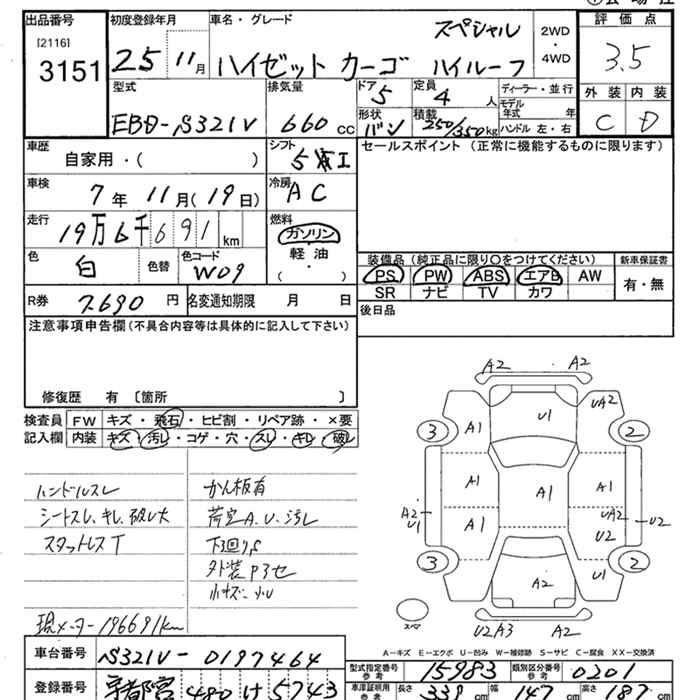 出品番号 初度登録年月 車名・グレード 評価点
[2116]
3151
25 11月 ハイゼット カーゴ スペシャル ハイルーフ 2WD・4WD
3.5
型式 排気量 ドア 定員 ディーラー・並行 外装 内装
EBD-S321V 660 cc 5 4人
モデル年式 年
形状 積載 ハンドル 左・右
バン 250/350kg
C D
車歴 シフト セールスポイント (正常に機能するものに限ります)
自家用・( )
車検 冷房
7年11月(19日) AC
走行 燃料
19万6千691km ガソリン
軽油
・
( )
色 色替 色コード
白 W09
装備品 (純正品に限り○をつけてください) 新車保証書
PS PW ABS エアB AW 有・無
SR ナビ TV カワ
R券 7,690円 名変通知期限 月 日
後日品
注意事項申告欄 (不具合内容等は具体的に記入して下さい)
修復歴 有 〔箇所 〕
検査員 FW キズ・飛石・ヒビ割・リペア跡・×要
記入欄 内装 キズ・汚レ・コゲ・穴・スレ・キレ・破レ
ハンドルスレ
シートスレ、キレ、破レ大
スタットレスT
かん板有
荷室A.U.汚レ
下回りS
外装Pヨセ
小キズ・小U
現メーター196691km
A2 A2
U1 UA2
3 A1 2
A1 A1 A1
A2 U1 A1 UA2 U2
U2
3 A2 U1 2
U2A3 A2
スペア
A-キズ E-エクボ U-凹み W-補修跡 S-サビ C-腐食 XX-交換済
車台番号 S321V-0197464
型式指定番号 参考 15983 類別区分番号 参考 0201
登録番号 宇都宮 480 け 5743
車庫証明用 参考 長さ 339 cm 幅 147 cm 高さ 187 cm